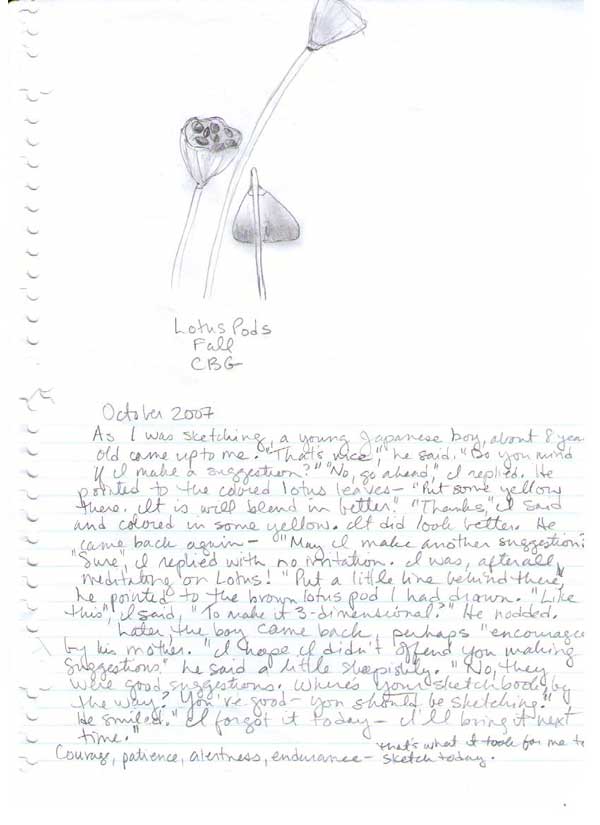 Lotus Pods
Fall
CBG
October 2007
As I was sketching, a young Japanese boy, about 8 yea
old came up to me. "That's nice," he said. "Do you mind
if I make a suggestion?" "No, go ahead," I replied. He
pointed to the colored lotus leaves- "Put some yellow
there. It is will blend in better." "Thanks," I said
and colored in some yellow. It did look better. He
came back again- "May I make another suggestion?
"Sure", I replied with no irritation. I was, afterall,
meditating on Lotus! "Put a little line behind there,"
he pointed to the brown lotus pod I had drawn. "Like
this", I said, "To make it 3-dimensional?" He nodded.
Later, the boy came back, perhaps "encourage
by his mother. "I hope I didn't offend you making
suggestions," he said a little sheepishly. "No, they
were good suggestions. Where's your sketchbook, by
the way? You've good- you should be sketching."
He smiled. "I forgot it today- I'll bring it next
time."
Courage, patience, alertness, endurance- that's what it took for me to
sketch today.